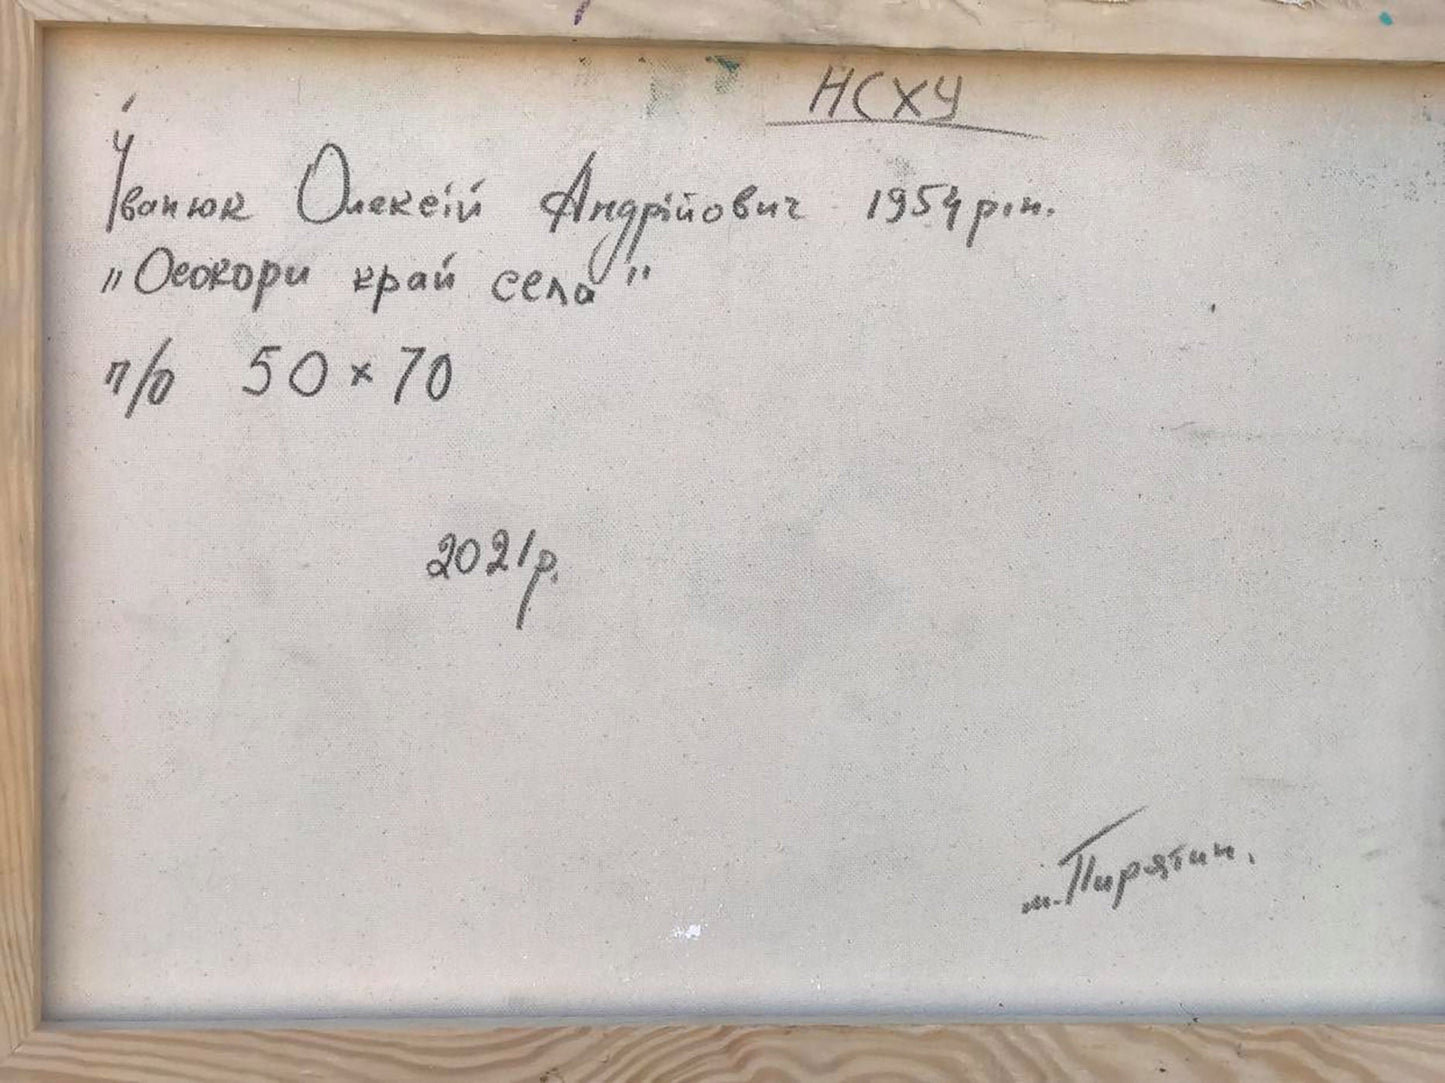 НСХУ
Іванюк Олексій Андрійович 1954 р.н.
„Осокори край села"
п/о 50×70
2021р.
м. Пирятин.